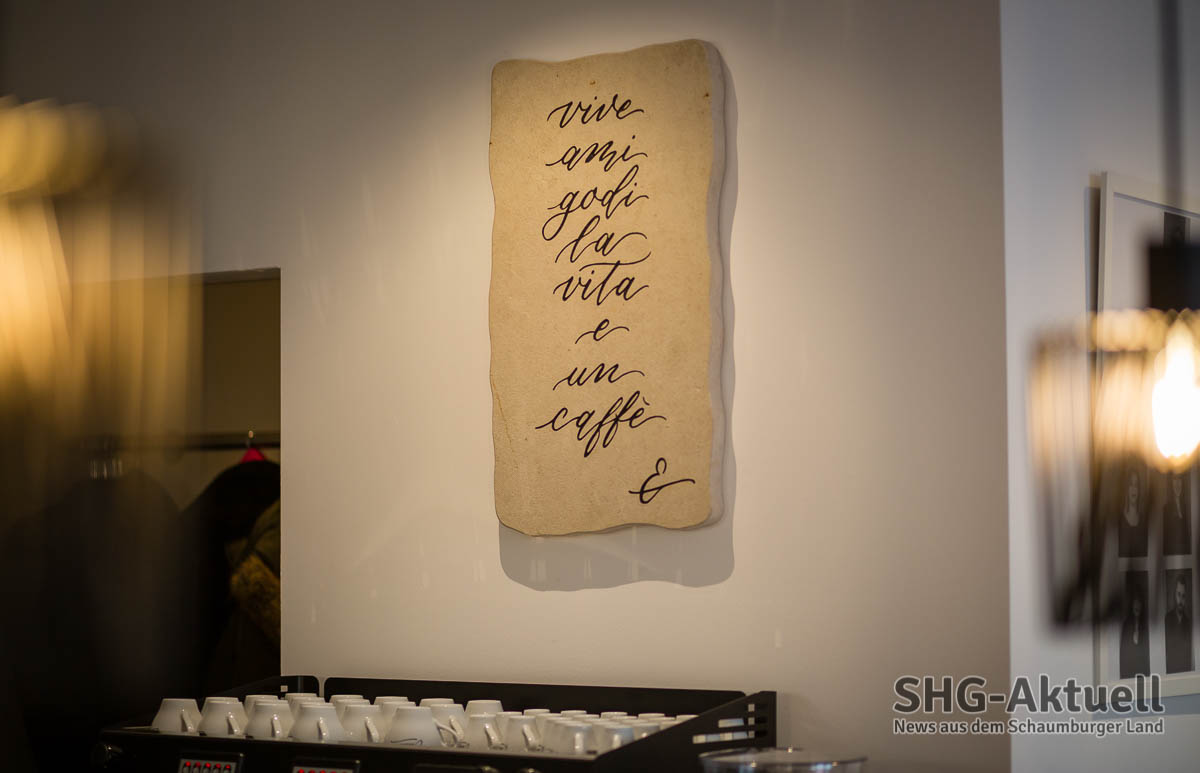 vive
ami
godi
la
vita
e
un
caffè
&
SHG-Aktuell
News aus dem Schaumburger Land